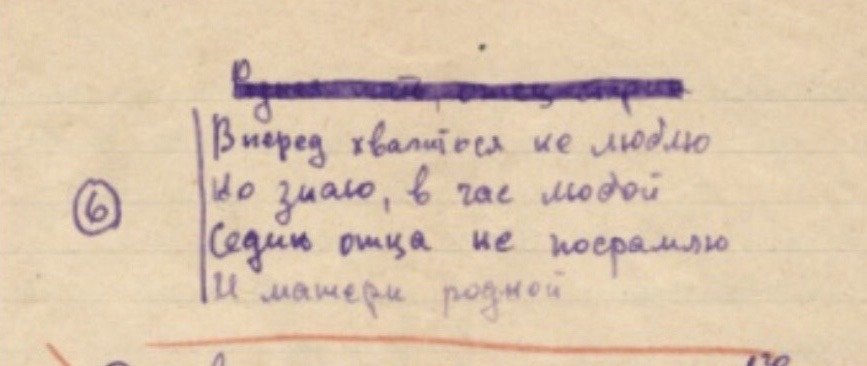 Вперед хвалиться не люблю
6 Но знаю, в час любой
Седин отца не посрамлю
И матери родной